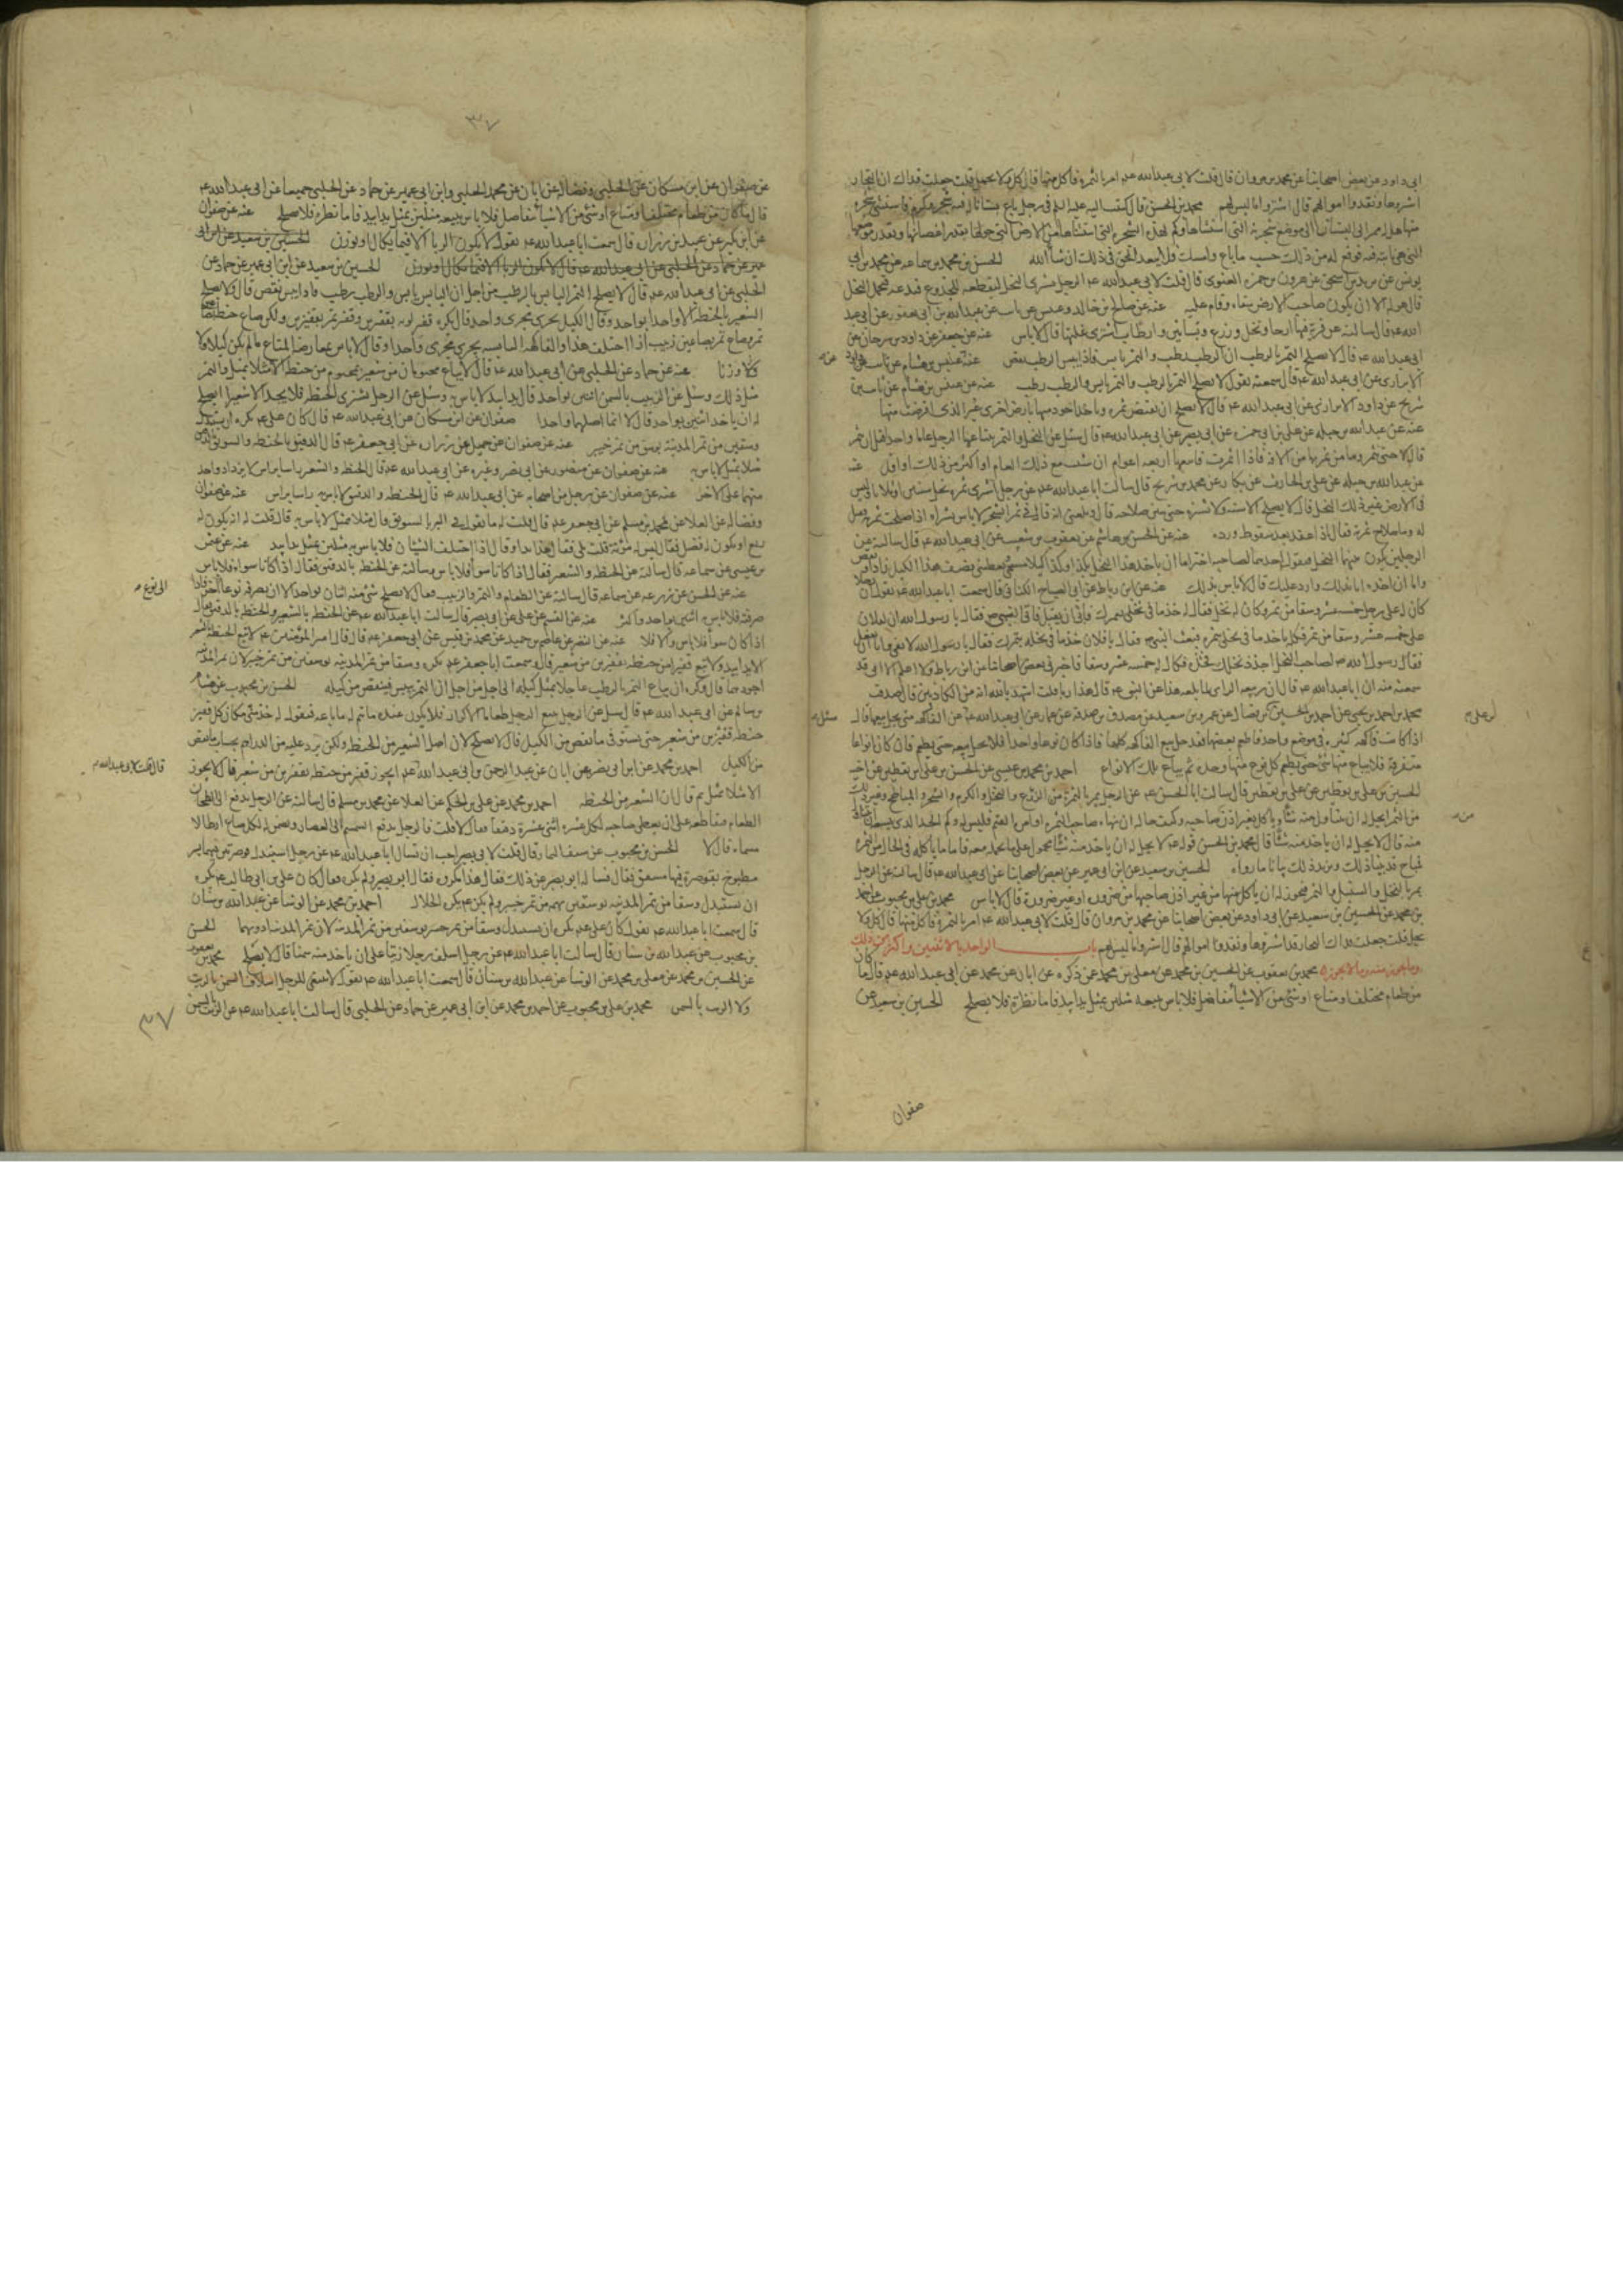 ابى داود عن بعض اصحابنا عن محمد بن مروان قال قلت لابى عبدالله ع امر بالثمرة فاكل منها قال كل ولا تحمل قلت جعلت فداك ان التجار
اشتروها ونقدوا اموالهم قال اشتروا ما ليس لهم محمد بن الحسن قال كتبت اليه فى رجل باع بستانا له فيه شجر وكرم فاستثنى شجرة
منها هل له ممر الى البستان الى موضع شجرته التى استثناها وكم لهذه الشجرة التى استثناها من الارض التى حولها بقدر اغصانها وبقدر موضعها
التى هى ثابتة فيه فوقع له من ذلك على حسب ما باع وامسك فلا يتعدا الحق فى ذلك ان شاء الله الحسن بن محمد بن سماعه عن محمد بن ابى
يونس عن بريد بن اسحق عن هرون بن حمزه الغنوى قال قلت لابى عبدالله ع الرجل يشترى النخل ليقطعه للجذوع فيدعه فيحمل النخل
قال هو له الا ان يكون صاحب الارض سقاه وقام عليه عنه عن صالح بن خالد وعبيس عن ثابت عن عبدالله بن ابى يعفور عن ابى عبد
الله ع قال سالته عن قرية فيها ارحا ونخل وزرع وبساتين وارطاب اشترى غلتها قال لا باس عنه عن جعفر عن داود بن سرحان عن
ابى عبدالله ع قال لا يصلح التمر بالرطب ان الرطب رطب والتمر يابس فاذا يبس الرطب نقص عنه عن عبيس بن هشام عن ثابت عن داود
الابزارى عن ابى عبدالله ع قال سمعته يقول لا يصلح التمر بالرطب والتمر يابس والرطب رطب عنه عن عبيس بن هشام عن ثابت بن
شريح عن داود الابزارى عن ابى عبدالله ع قال لا يصلح ان
عنه عن عبدالله بن جبله عن على بن ابى حمزه عن ابى بصير عن ابى عبدالله ع قال سئل عن النخل والتمر يبتاعها الرجل عاما واحدا قبل ان يثمر
قال لا حتى تثمر وتامن ثمرتها من الافة فاذا اثمرت فابتعها اربعه اعوام ان شئت مع ذلك العام او اكثر من ذلك او اقل عنه
عن عبدالله بن جبله عن على بن الحارث عن بكار عن محمد بن شريح قال سالت ابا عبدالله ع عن رجل اشترى ثمرة نخل سنتين او ثلاثا وليس
فى الارض غير ذلك النخل قال لا يصلح الا سنة ولا تشتره حتى يبين صلاحه قال وبلغنى انه قال فى ثمر الشجر لا باس بشراه اذا صلحت ثمرته فقيل
له وما صلاح ثمرته فقال اذا عقد بعد سقوط ورده عنه عن الحسن بن هاشم عن يعقوب بن شعيب عن ابى عبدالله ع قال سالته عن
الرجلين يكون بينهما النخل فيقول احدهما لصاحبه اختر اما ان تاخذ هذا النخل بكذا وكذا كيلا مسمى وتعطينى نصف هذا الكيل
واما ان اخذه انا بذلك وارد عليك قال لا باس بذلك عنه عن ابن رباط عن ابى الصباح الكنانى قال سمعت ابا عبدالله ع يقول ان رجلا
كان له على رجل خمسه عشر وسقا من تمر وكان له نخل فقال له خذ ما فى نخلى بتمرك فابى ان يقبل فاتى النبى ص فقال يا رسول الله ان لفلان
على خمسه عشر وسقا من تمر فكلمه ياخذ ما فى نخلى بتمره فبعث النبى ص فقال يا فلان خذ ما فى نخله بتمرك فقال يا رسول الله لا يفى وابى ان يفعل
فقال رسول الله ص لصاحب النخل اجذذ نخلك فجذه فكال له خمسه عشر وسقا فاخبرنى بعض اصحابنا عن ابن رباط ولا اعلم الا انى قد
سمعته منه ان ابا عبدالله ع قال ان ربيعه الراى لما بلغه هذا عن النبى ص قال هذا ربا قلت اشهد بالله انه من الكاذبين قال صدقت
محمد بن احمد بن يحيى عن احمد بن الحسن بن على بن فضال عن عمرو بن سعيد عن مصدق بن صدقه عن عمار عن ابى عبدالله ع سئل عن الفاكهه متى يحل بيعها قال
اذا كانت فاكهه كثيره فى موضع واحد فاطعم بعضها فقد حل بيع الفاكهه كلها فاذا كان نوعا واحدا فلا يحل بيعه حتى يطعم فان كان انواعا
متفرقة فلا يباع منها شى حتى يطعم كل نوع منها وحده ثم يباع تلك الانواع احمد بن محمد بن عيسى عن الحسن بن على بن يقطين عن اخيه
الحسين بن على بن يقطين عن على بن يقطين قال سالت ابا الحسن ع عن الرجل يمر بالثمرة من الزرع والنخل والكرم والشجر والمباطخ وغير ذلك
من الثمر ايحل له ان يتناول منه شيا وياكل بغير اذن صاحبه وكيف حاله ان نهاه صاحب الثمرة او امره القيم فليس له وكم الحد الذى يسعه ان يتناول
منه قال لا يحل له ان ياخذ منه شيا قال محمد بن الحسن قوله ع لا يحل له ان ياخذ منه شيا محمول على ما يحمله معه فاما ما ياكله فى الحال من الثمرة
فمباح قد بينا ذلك ويزيد ذلك بيانا ما رواه الحسين بن سعيد عن ابن ابى عمير عن بعض اصحابنا عن ابى عبدالله ع قال سالته عن الرجل
يمر بالنخل والسنبل والثمر فيجوز له ان ياكل منها من غير اذن صاحبها من ضرورة او غير ضرورة قال لا باس محمد بن على بن محبوب عن احمد
بن محمد عن الحسين بن سعيد عن ابى داود عن بعض اصحابنا عن محمد بن مروان قال قلت لابى عبدالله ع امر بالثمرة فاكل منها قال كل ولا
تحمل قلت جعلت فداك ان التجار قد اشتروها ونقدوا اموالهم قال اشتروا ما ليس لهم باب الواحد بالاثنين واكثر من ذلك
وما يجوز منه وما لا يجوز محمد بن يعقوب عن الحسين بن محمد عن معلى بن محمد عمن ذكره عن ابان عن محمد عن ابى عبدالله ع قال ما كان
من طعام مختلف او متاع او شى من الاشيا متفاضل فلا باس ببيعه مثلين بمثل يدا بيد فاما نظرة فلا يصلح الحسين بن سعيد عن
صفوان
٣٧
عن صفوان عن ابن مسكان عن الحلبى وفضاله عن ابان عن محمد الحلبى وابن ابى عمير عن حماد عن الحلبى جميعا عن ابى عبدالله ع
قال ما كان من طعام مختلف او متاع او شى من الاشيا يتفاضل فلا باس ببيعه مثلين بمثل يدا بيد فاما نظره فلا يصلح عنه عن صفوان
عن ابن بكير عن عبيد بن زراره قال سمعت ابا عبدالله ع يقول لا يكون الربا الا فيما يكال او يوزن الحسين بن سعيد عن ابن ابى
عمير عن حماد عن الحلبى عن ابى عبدالله ع قال لا يكون الربا الا فيما يكال او يوزن الحسين بن سعيد عن ابن ابى عمير عن حماد عن
الحلبى عن ابى عبدالله ع قال لا يصلح التمر اليابس بالرطب من اجل ان اليابس يابس والرطب رطب فاذا يبس نقص قال ولا يصلح
الشعير بالحنطه الا واحدا بواحد وقال الكيل يجرى مجرى واحد قال يكره قفيز لوز بقفيزين وقفيز تمر بقفيزين ولكن صاع حنطه بصاعين
تمر وصاع تمر بصاعين زبيب اذا اختلف هذا والفاكهه اليابسه يجرى مجرى واحدا وقال لا باس بمعارضه المتاع ما لم يكن كيلا ولا
وزنا عنه عن حماد عن الحلبى عن ابى عبدالله ع قال لا يباع مختومان من شعير بمختوم من حنطه الا مثلا بمثل والتمر
مثل ذلك وسئل عن الزيت بالسمن اثنين بواحد قال يدا بيد لا باس به وسئل عن الرجل يشترى الحنطه فلا يجد الا شعيرا ايصلح
له ان ياخذ اثنين بواحد قال لا انما اصلهما واحد صفوان عن ابن مسكان عن ابى عبدالله ع قال كان على ع يكره ان يستبدل
وسقين من تمر المدينه بوسق من تمر خيبر عنه عن صفوان عن جميل عن زراره عن ابى جعفر ع قال الدقيق بالحنطه والسويق بالدقيق
مثلا بمثل لا باس به عنه عن صفوان عن منصور عن ابى بصير وغيره عن ابى عبدالله ع قال الحنطه والشعير راسا براس لا يزداد واحد
منهما على الاخر عنه عن صفوان عن رجل من اصحابه عن ابى عبدالله ع قال الحنطه والدقيق لا باس به راسا براس عنه عن صفوان
وفضاله عن العلا عن محمد بن مسلم عن ابى جعفر ع قال قلت له ما تقول فى البر بالسويق قال مثلا بمثل لا باس به قال قلت له انه يكون له
ريع او يكون له فضل فقال اليس له مؤنة قلت بلى فقال هذا بذا وقال اذا اختلف الشيئان فلا باس به مثلين بمثل يدا بيد عنه عن عثمن
بن عيسى عن سماعه قال سالته عن الحنطه والشعير فقال اذا كانا سواء فلا باس وسالته عن الحنطه بالدقيق فقال اذا كانا سواء فلا باس
عنه عن الحسن عن زرعه عن سماعه قال سالته عن الطعام والتمر والزبيب فقال لا يصلح شى منه اثنان بواحد الا ان تصرفه نوعا الى نوع اخر فاذا
صرفته فلا باس به اثنين بواحد واكثر عنه عن القسم عن على عن ابى بصير قال سالت ابا عبدالله ع عن الحنطه بالشعير والحنطه بالدقيق فقال
اذا كان سواء فلا باس والا فلا عنه عن النضر عن عاصم بن حميد عن محمد بن قيس عن ابى جعفر ع قال قال امير المؤمنين ع لا تبع الحنطه بالشعير
الا يدا بيد ولا تبع قفيزا من حنطه بقفيزين من شعير قال وسمعت ابا جعفر ع يكره وسقا من تمر المدينه بوسقين من تمر خيبر لان تمر المدينه
اجودهما قال وكره ان يباع التمر بالرطب عاجلا بمثل كيله الى اجل من اجل ان التمر ييبس فينقص من كيله الحسن بن محبوب عن هشام
بن سالم عن ابى عبدالله ع قال سئل عن الرجل يبيع الرجل طعاما الاكرار فلا يكون عنده ما يتم له ما باعه فيقول له خذ منى مكان كل قفيز
حنطه قفيزين من شعير حتى يستوفى ما نقص من الكيل قال لا يصلح لان اصل الشعير من الحنطه ولكن يرد عليه من الدراهم بحساب ما نقص
من الكيل احمد بن محمد عن ابن ابى نصر عن ابان عن عبد الرحمن بن ابى عبدالله قال قلت لابى عبدالله ع ايجوز قفيز من حنطه بقفيزين من شعير قال لا يجوز
الا مثلا بمثل ثم قال ان الشعير من الحنطه احمد بن محمد عن على بن الحكم عن العلا عن محمد بن مسلم قال سالته عن الرجل يدفع الى الطحان
الطعام فيقاطعه على ان يعطى صاحبه لكل عشره اثنى عشره دقيقا فقال لا قلت فالرجل يدفع السمسم الى العصار ويضمن له لكل صاع ارطالا
مسماه قال لا الحسن بن محبوب عن سيف التمار قال قلت لابى بصير احب ان تسال ابا عبدالله ع عن رجل استبدل قوصرتين فيهما بسر
مطبوخ بقوصرة فيها مشقق قال فساله ابو بصير عن ذلك فقال هذا مكروه فقال ابو بصير ولم يكره فقال كان على بن ابى طالب ع يكره
ان يستبدل وسقا من تمر المدينه بوسقين من تمر خيبر ولم يكن ع يكره الحلال احمد بن محمد عن الوشا عن عبدالله بن سنان
قال سمعت ابا عبدالله ع يقول كان على ع يكره ان يستبدل وسقا من تمر خيبر بوسقين من تمر المدينه لان تمر المدينه ادونهما الحسن
بن محبوب عن عبدالله بن سنان قال سالت ابا عبدالله ع عن رجل اسلف رجلا زيتا على ان ياخذ منه سمنا قال لا يصلح محمد بن يعقوب
عن الحسين بن محمد عن معلى بن محمد عن الوشا عن عبدالله بن سنان قال سمعت ابا عبدالله ع يقول لا ينبغى للرجل اسلاف السمن بالزيت
ولا الزيت بالسمن محمد بن على بن محبوب عن احمد بن محمد عن ابن ابى عمير عن حماد عن الحلبى قال سالت ابا عبدالله ع عن الزيت بالسمن
٣٧